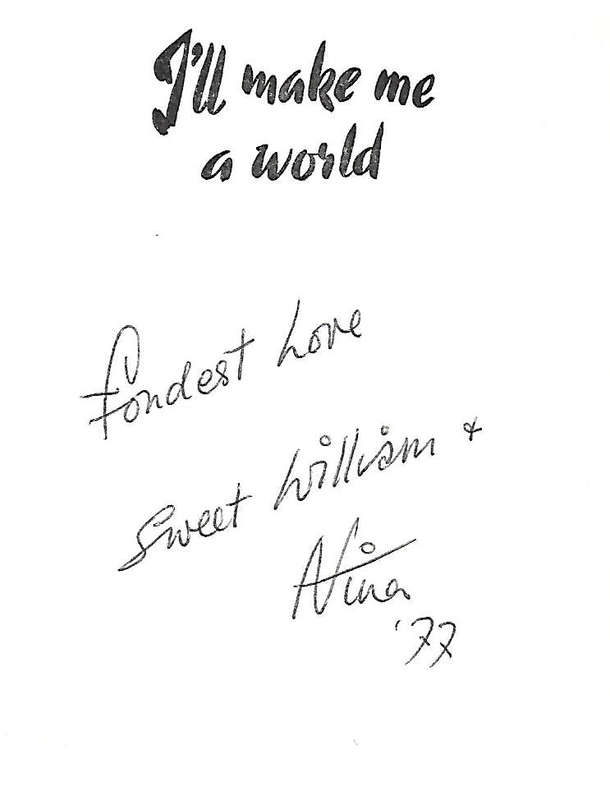 I'll make me
a world
Fondest Love
Sweet William &
Nina
'77